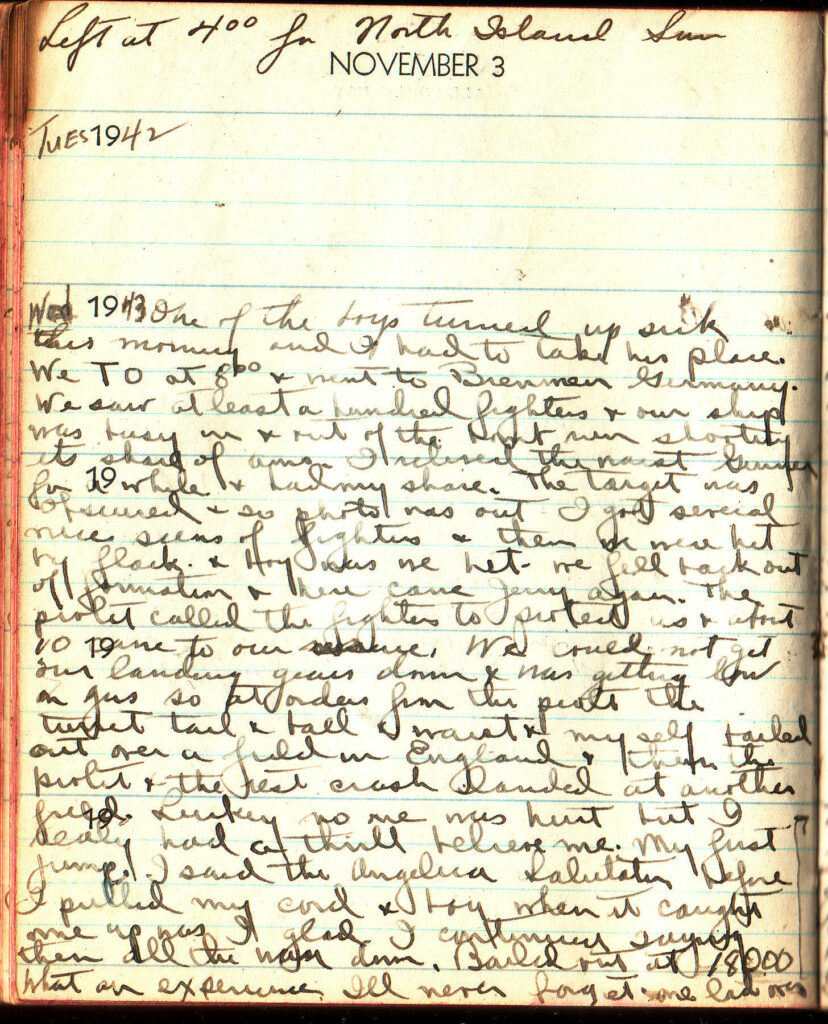 Left at 4⁰⁰ for North Island Sun
NOVEMBER 3
TUES 1942
Wed 1943 One of the boys turned up sick
this morning and I had to take his place.
We TO at 8⁰⁰ & went to Bremmen Germany.
We saw at least a hundred fighters & our ship
was busy in & out of the run shooting
its share of ammo. I relieved the waist Gunner
for a while & had my share. The target was
19
obscured & so photo was out. I got several
nice scens of fighters & then we were het
by flack. & Hoy was we het - we fell back out
of formation & here came Jerry again. The
piolet called the fighters to protect us & about
10 came to our rescue. We could not get
19
our landing gears down & was getting low
on gas so at orders from the piolt the
turret tail & ball & waist & my self bailed
out over a field in England & then the
piolit & the rest crash landed at another
field. Luckey no one was hurt but I
19
really had a thrill believe me. My first
jump. I said the Angelica Salutation before
I pulled my cord & boy when it caught
me up was I glad I continued saying
them all the way down. Bailed out at 18000
What an experience. Ill never forget one lad over